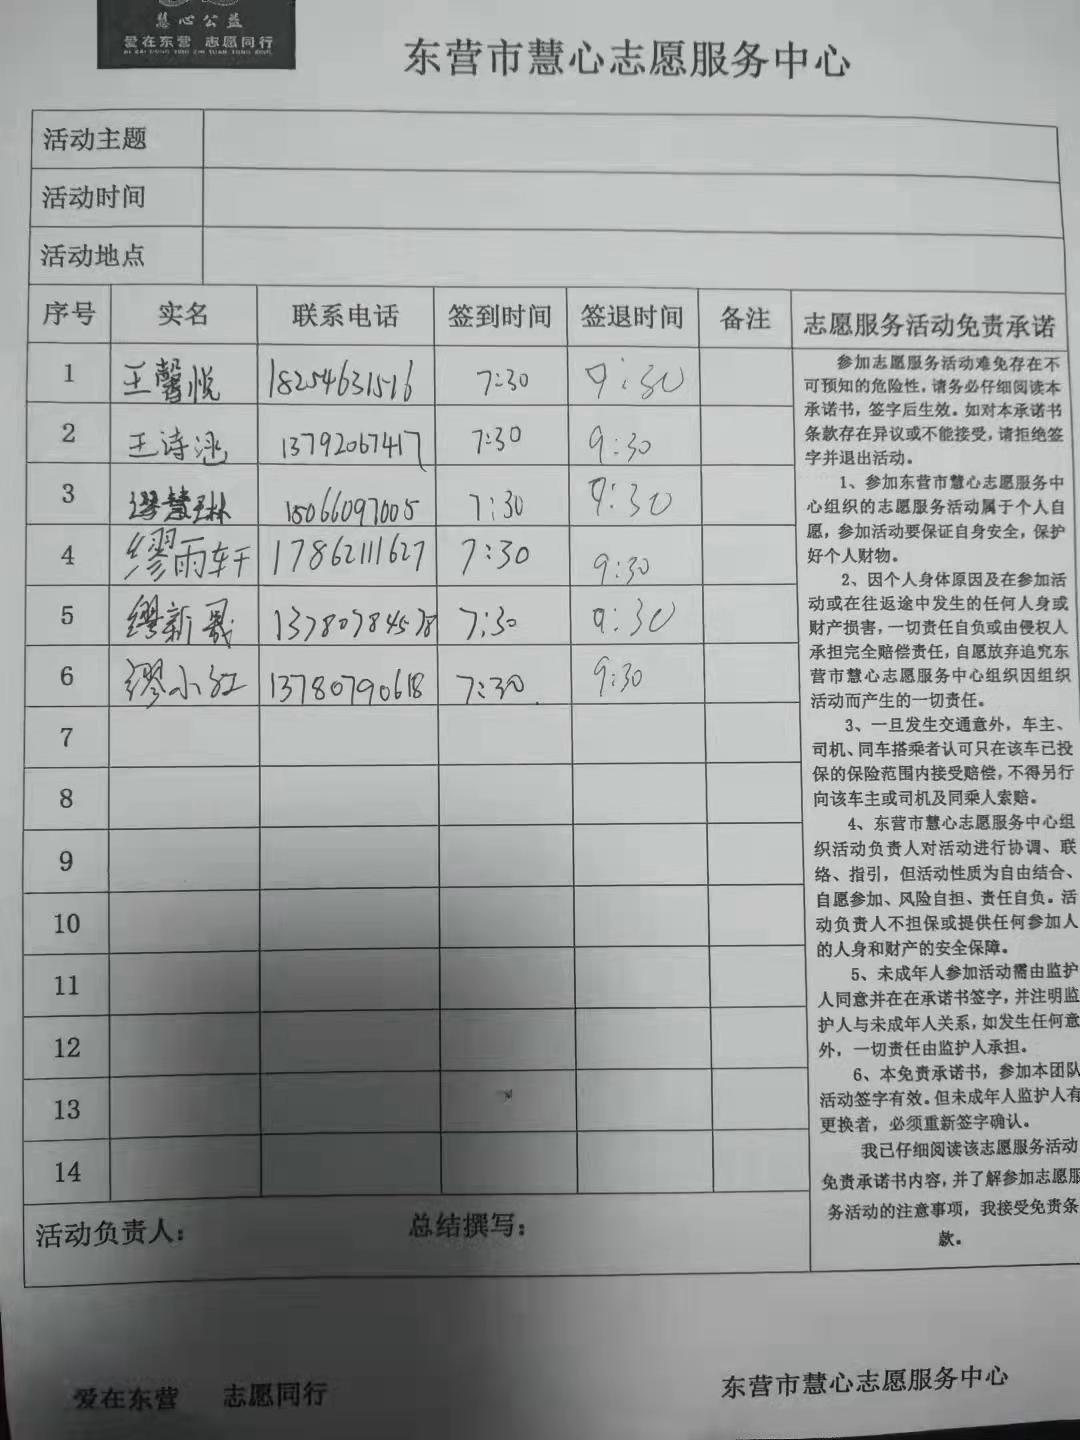 慧心公益
爱在东营 志愿同行
东营市慧心志愿服务中心
活动主题
活动时间
活动地点
序号 实名 联系电话 签到时间 签退时间 备注
1 王馨悦 18254631516 7:30 9:30
2 王诗涵 13792067417 7:30 9:30
3 缪慧琳 15066097005 7:30 9:30
4 缪雨轩 17862111627 7:30 9:30
5 缪新晟 13780784538 7:30 9:30
6 缪小红 13780790618 7:30 9:30
7
8
9
10
11
12
13
14
志愿服务活动免责承诺
参加志愿服务活动难免存在不
可预知的危险性,请务必仔细阅读本
承诺书,签字后生效。如对本承诺书
条款存在异议或不能接受,请拒绝签
字并退出活动。
1、参加东营市慧心志愿服务中
心组织的志愿服务活动属于个人自
愿,参加活动要保证自身安全,保护
好个人财物。
2、因个人身体原因及在参加活
动或在往返途中发生的任何人身或
财产损害,一切责任自负或由侵权人
承担完全赔偿责任,自愿放弃追究东
营市慧心志愿服务中心组织因组织
活动而产生的一切责任。
3、一旦发生交通意外,车主、
司机、同车搭乘者认可只在该车已投
保的保险范围内接受赔偿,不得另行
向该车主或司机及同乘人索赔。
4、东营市慧心志愿服务中心组
织活动负责人对活动进行协调、联
络、指引,但活动性质为自由结合、
自愿参加、风险自担、责任自负。活
动负责人不担保或提供任何参加人
的人身和财产的安全保障。
5、未成年人参加活动需由监护
人同意并在在承诺书签字,并注明监
护人与未成年人关系,如发生任何意
外,一切责任由监护人承担。
6、本免责承诺书,参加本团队
活动签字有效。但未成年人监护人有
更换者,必须重新签字确认。
我已仔细阅读该志愿服务活动
免责承诺书内容,并了解参加志愿服
务活动的注意事项,我接受免责条
款。
活动负责人: 总结撰写:
爱在东营 志愿同行 东营市慧心志愿服务中心